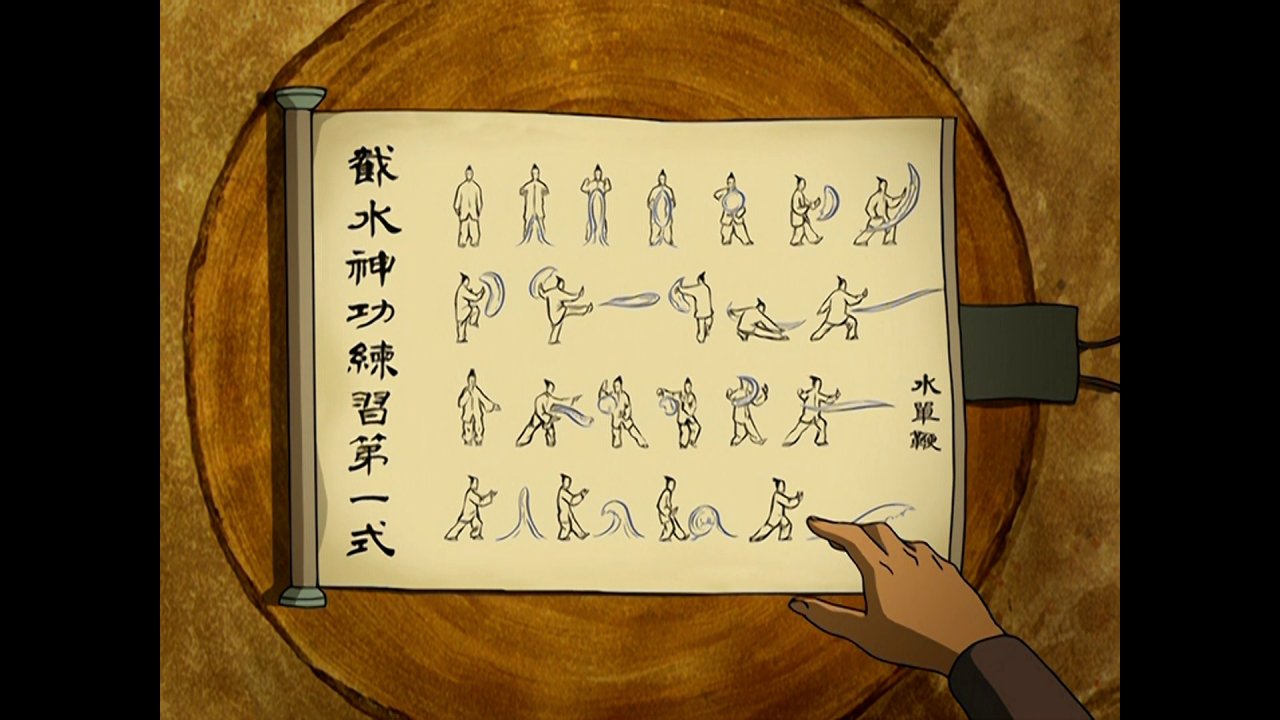 截水神功練習第一式
水單鞭